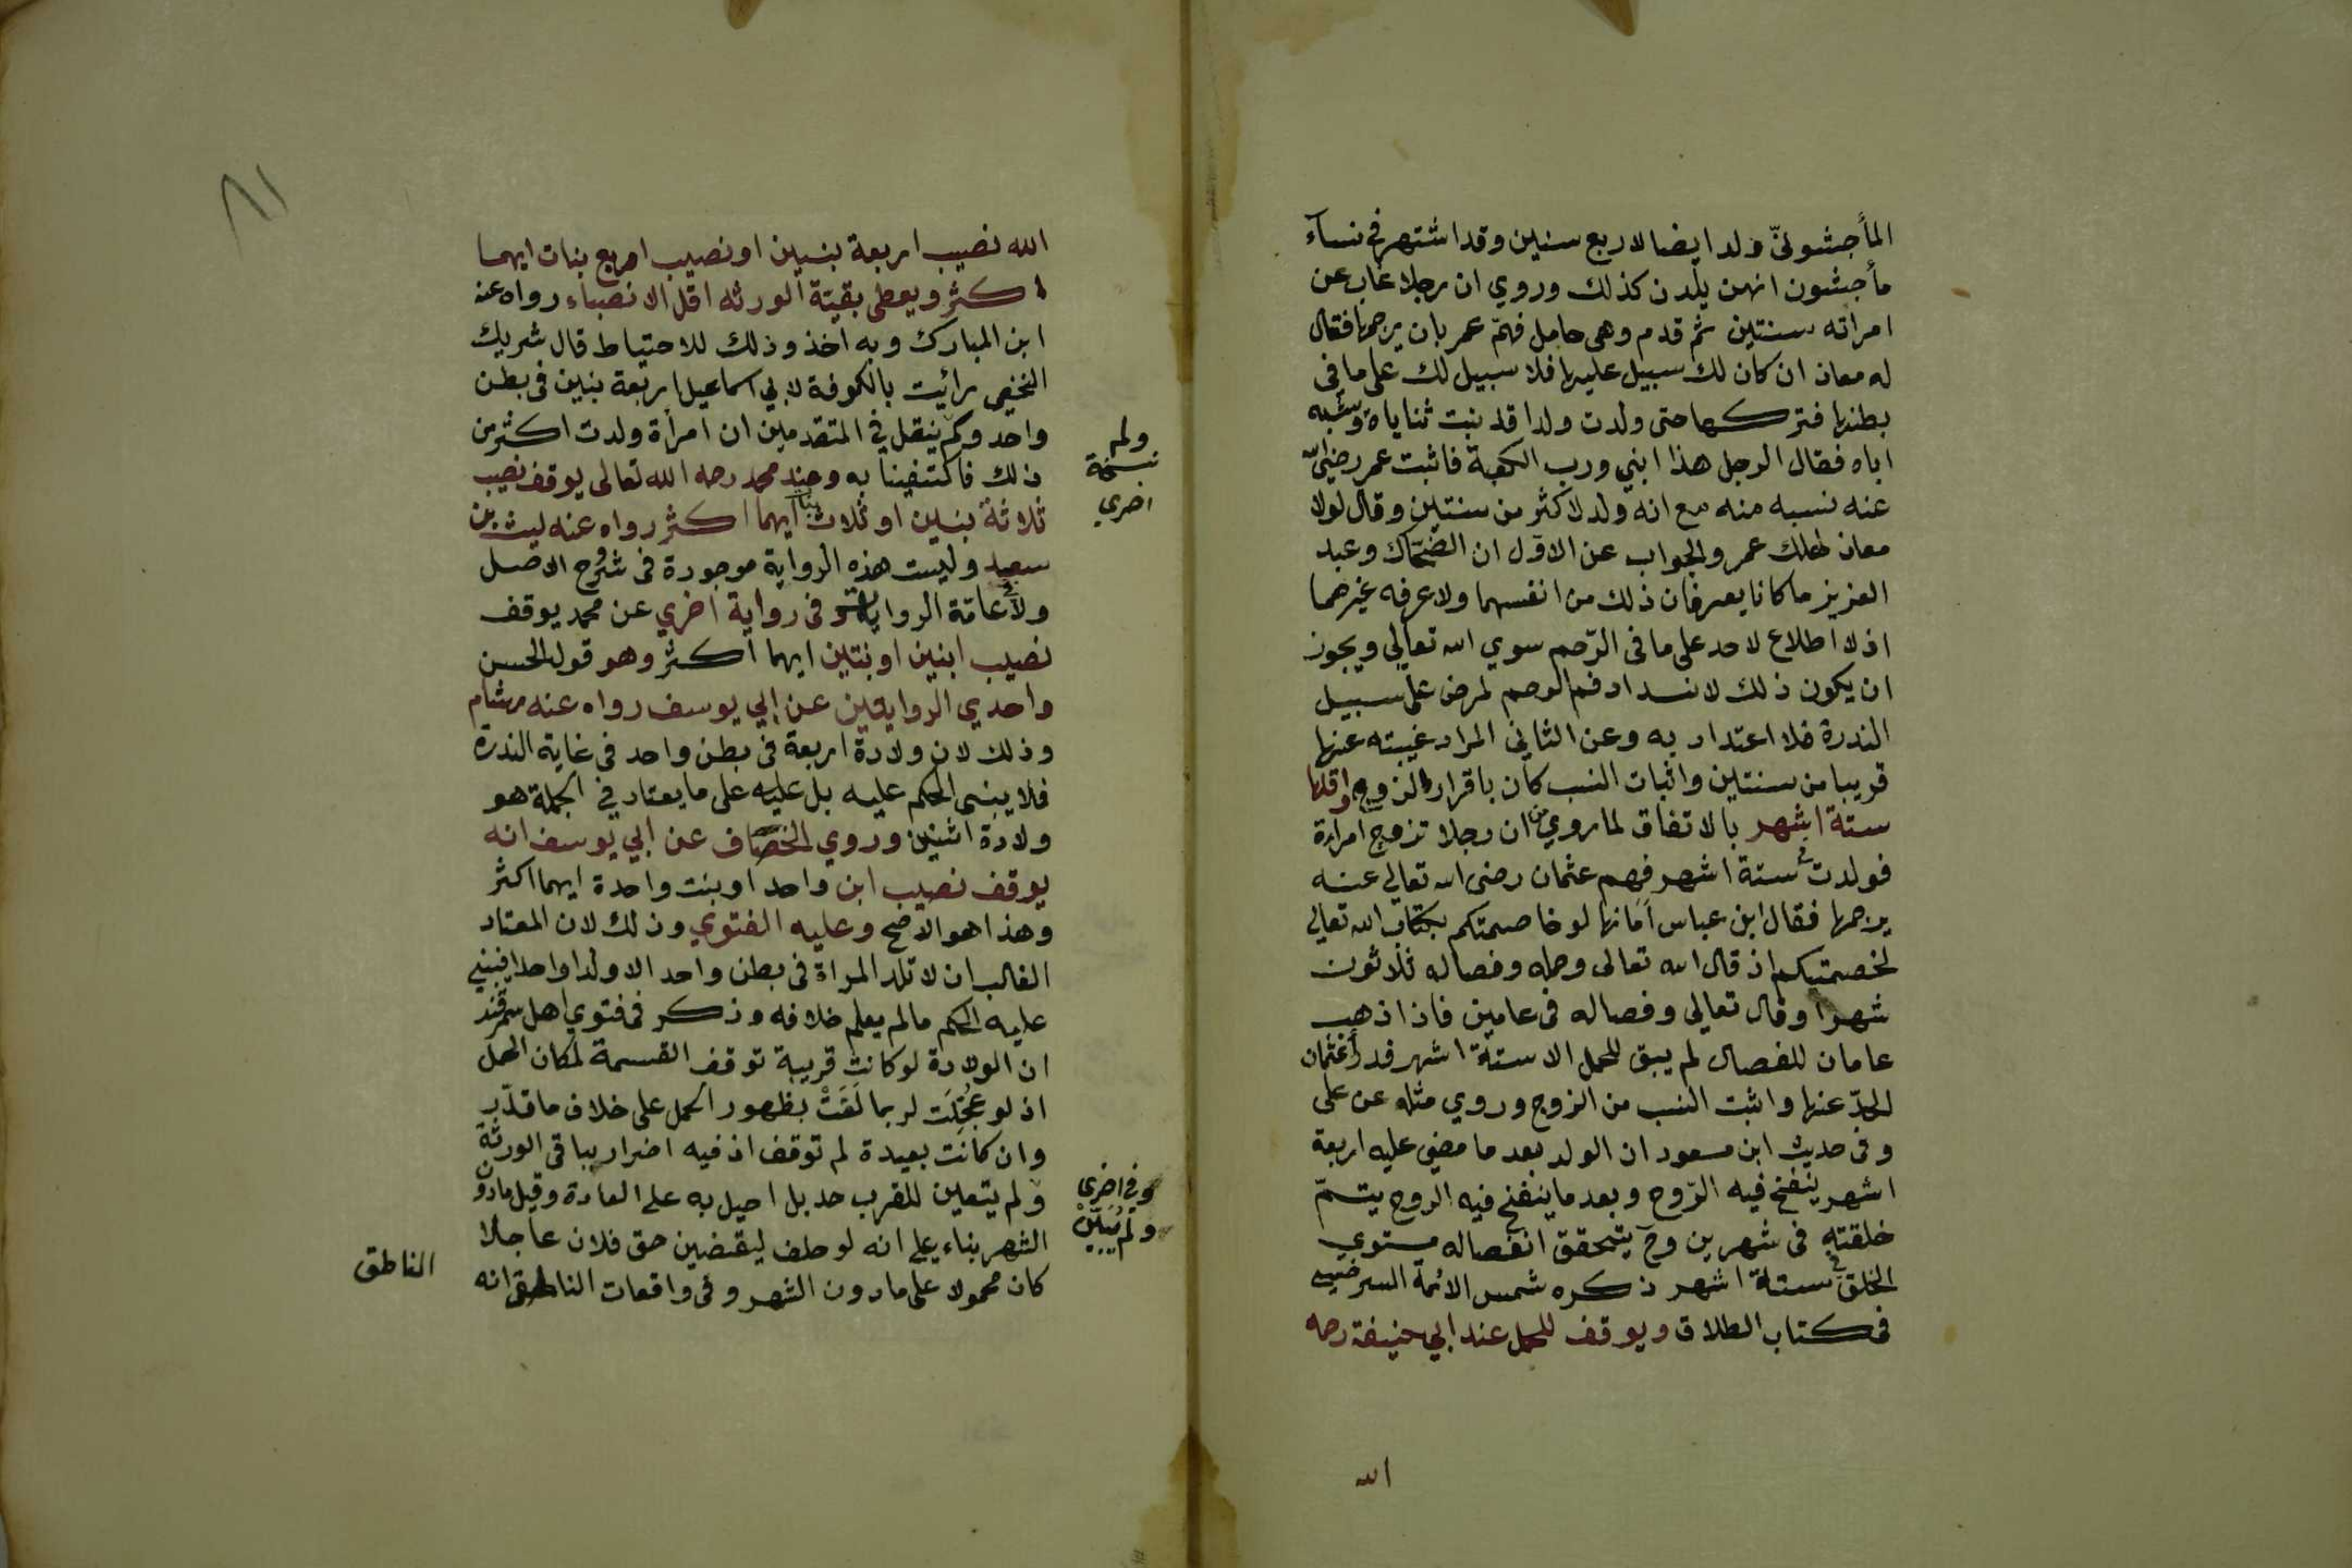 المأجشونيّ ولد ايضا لاربع سنين وقد اشتهر في نساء
مأجشون انهن يلدن كذلك وروي ان رجلا غاب عن
امراته سنتين ثم قدم وهي حامل فهمّ عمر بان يرجمها فقال
له معاذ ان كان لك سبيل عليها فلا سبيل لك على ما فى
بطنها فتركها حتى ولدت ولدا قد نبت ثناياه وشبه
اباه فقال الرجل هذا ابني ورب الكعبة فاثبت عمر رضي الله
عنه نسبه منه مع انه ولد لاكثر من سنتين وقال لولا
معاذ لهلك عمر والجواب عن الاوّل ان الضحّاك وعبد
العزيز ما كانا يعرفان ذلك من انفسهما ولا عرفه غيرهما
اذ لا اطلاع لاحد على ما فى الرّحم سوي الله تعالى ويجوز
ان يكون ذلك لانسداد فم الرحم لمرض على سبيل
الندرة فلا اعتداد به وعن الثاني المراد غيبته عنها
قريبا من سنتين واثبات النسب كان باقرار الزوج واقلها
ستة اشهر بالاتفاق لما روي من ان رجلا تزوج امراءة
فولدت في ستة اشهر فهم عثمان رضى الله تعالي عنه
يرجمها فقال ابن عباس أما انها لو خاصمتكم بكتاب الله تعالي
لخصمتيكم اذ قال الله تعالى وحمله وفصاله ثلاثون
شهرا وقال تعالي وفصاله فى عامين فاذا ذهب
عامان للفصال لم يبق للحمل الا ستة اشهر فدرأ عثمان
الحدّ عنها واثبت النسب من الزوج وروي مثله عن على
وفى حديث ابن مسعود ان الولد بعد ما مضى عليه اربعة
اشهر ينفخ فيه الرّوح وبعد ما ينفخ فيه الروح يتمّ
خلقته فى شهرين وح يتحقق انفصاله مستوي
الخلق في ستة اشهر ذكره شمس الائمة السرخسي
فى كتاب الطلاق ويوقف للحمل عند ابي حنيفة رحمه
الله
٨١
الله نصيب اربعة بنين او نصيب اربع بنات ايهما
اكثر ويعطى بقيّة الورثه اقل الانصباء رواه عنه
ابن المبارك وبه اخذ وذلك للاحتياط قال شريك
النخعي رائيت بالكوفة لابي اسماعيل اربعة بنين فى بطن
واحد وكم ينقل في المتقدمين ان امرأة ولدت اكثر من
ولم
نسخة
اخري
ذلك فاكتفينا به وعند محمد رحمه الله تعالى يوقف نصيب
ثلاثة بنين او ثلاث بنات ايهما اكثر رواه عنه ليث بن
سعيد وليست هذه الرواية موجودة فى شروح الاصل
ولا في عامّة الروايات وفى رواية اخري عن محمد يوقف
نصيب ابنين او بنتين ايهما اكثر وهو قول الحسن
واحدي الروايتين عن ابي يوسف رواه عنه هشام
وذلك لان ولادة اربعة فى بطن واحد فى غاية الندرة
فلا يبنى الحكم عليه بل عليه على ما يعتاد في الجملة هو
ولادة اثنين وروي الخصّاف عن ابي يوسف انه
يوقف نصيب ابن واحد او بنت واحدة ايهما اكثر
وهذا هو الاصح وعليه الفتوي وذلك لان المعتاد
الغالب ان لا تلد المراة فى بطن واحد الا ولدا واحدا فيبني
عليه الحكم مالم يعلم خلافه وذكر فى فتوي اهل سمرقند
ان الولادة لو كانت قريبة توقف القسمة لمكان الحمل
اذ لو عجّلت لربما لغت بظهور الحمل على خلاف ما قدّر
وان كانت بعيدة لم توقف اذ فيه اضرار بباقى الورثة
ولم يتعين للقرب حد بل احيل به على العادة وقيل ما دون
وفي اخرى
ولم يبيّن
الشهر بناء على انه لو حلف ليقضين حق فلان عاجلا
كان محمولا على ما دون الشهر وفى واقعات الناطقى انه
الناطق